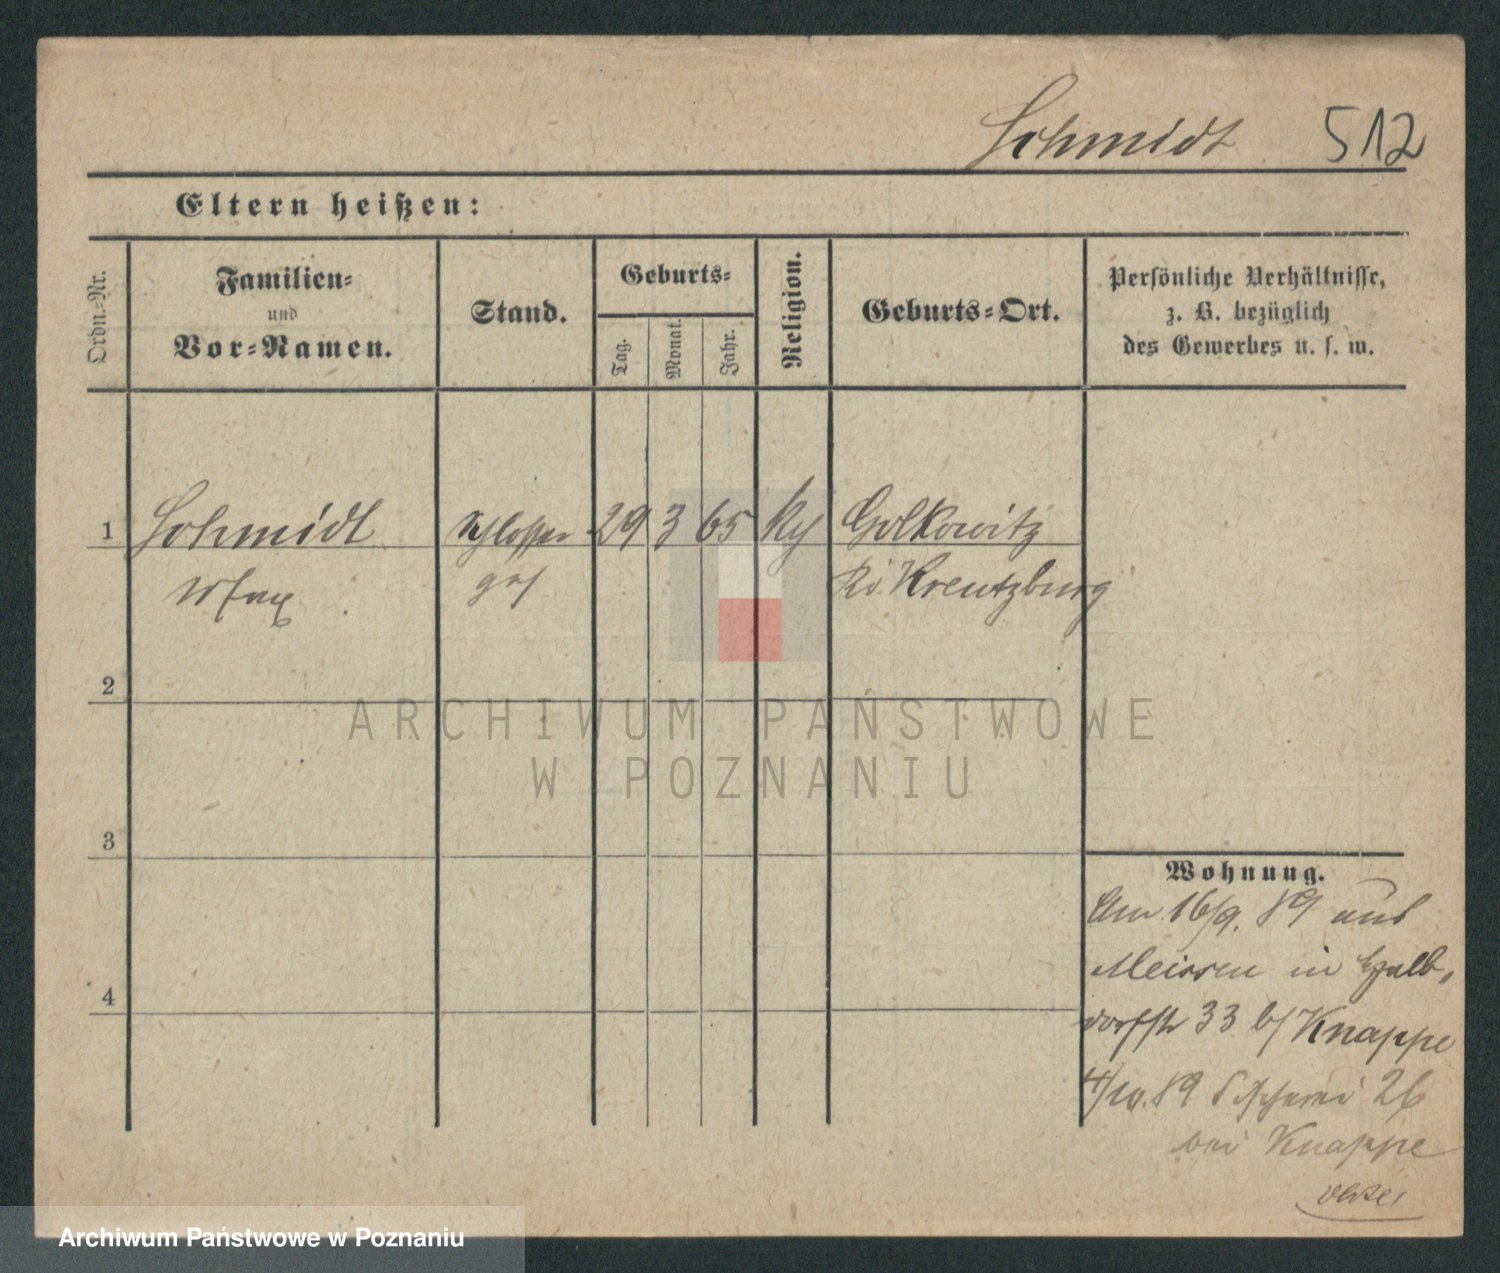 Schmidt 512
Eltern heißen:
Ordn.-Nr.
Familien-
und
Vor-Namen.
Stand.
Geburts-
Tag.
Monat.
Jahr.
Religion.
Geburts-Ort.
Persönliche Verhältnisse,
z. B. bezüglich
des Gewerbes u. s. w.
1 Schmidt Schlosser 29 3 65 Golkowitz
Kreutzburg
2
3
4
ARCHIWUM PAŃSTWOWE
W POZNANIU
Wohnung.
Am 16/9. 89 aus
Meissen in Halb-
dorfstr 33 b/ Knappe
4/10. 89 26
bei Knappe
Archiwum Państwowe w Poznaniu